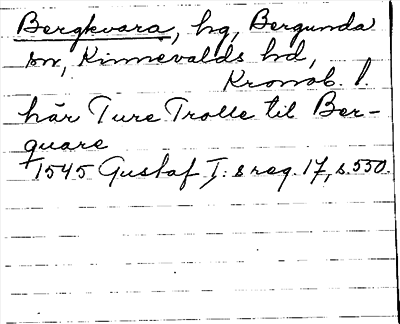 Bergkvara, hg, Bergunda
sn, Kinnevalds hd,
Kronob. l.
här Ture Trolle til Ber-
quare
1545 Gustaf I:s reg. 17, s. 550.